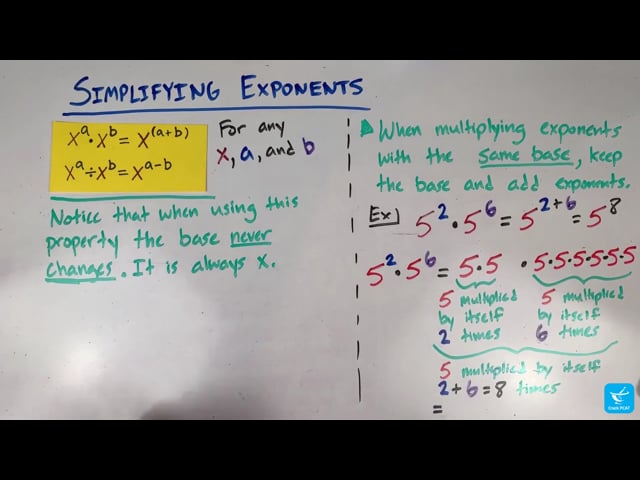 SIMPLIFYING EXPONENTS
xᵃ·xᵇ = x⁽ᵃ⁺ᵇ⁾
xᵃ÷xᵇ = xᵃ⁻ᵇ
For any
x, a, and b
Notice that when using this
property the base never
changes. It is always x.
When multiplying exponents
with the same base, keep
the base and add exponents.
Ex) 5²·5⁶ = 5²⁺⁶ = 5⁸
5²·5⁶ = 5·5 · 5·5·5·5·5·5
5 multiplied
by itself
2 times
5 multiplied
by itself
6 times
5 multiplied by itself
2+6=8 times
=
Crash PCAT